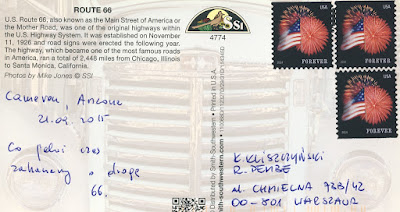 ROUTE 66
U.S. Route 66, also known as the Main Street of America or
the Mother Road, was one of the original highways within
the U.S. Highway System. It was established on November
11, 1926 and road signs were erected the following year.
The highway, which became one of the most famous roads
in America, ran a total of 2,448 miles from Chicago, Illinois
to Santa Monica, California.
Photos by Mike Jones © SSI
SSI
4774
Cameron, Arizona
21.02.2015
Co pełni czas
zahaczamy o drogę
66.
Distributed by Smith-Southwestern •
www.smith-southwestern.com •
Printed in U.S.A.
USA
FOREVER
USA
FOREVER
USA
FOREVER
K. KLISZCZYŃSKI
R. PEMBE
ul. CHMIELNA 73B/42
00-801 WARSZAWA